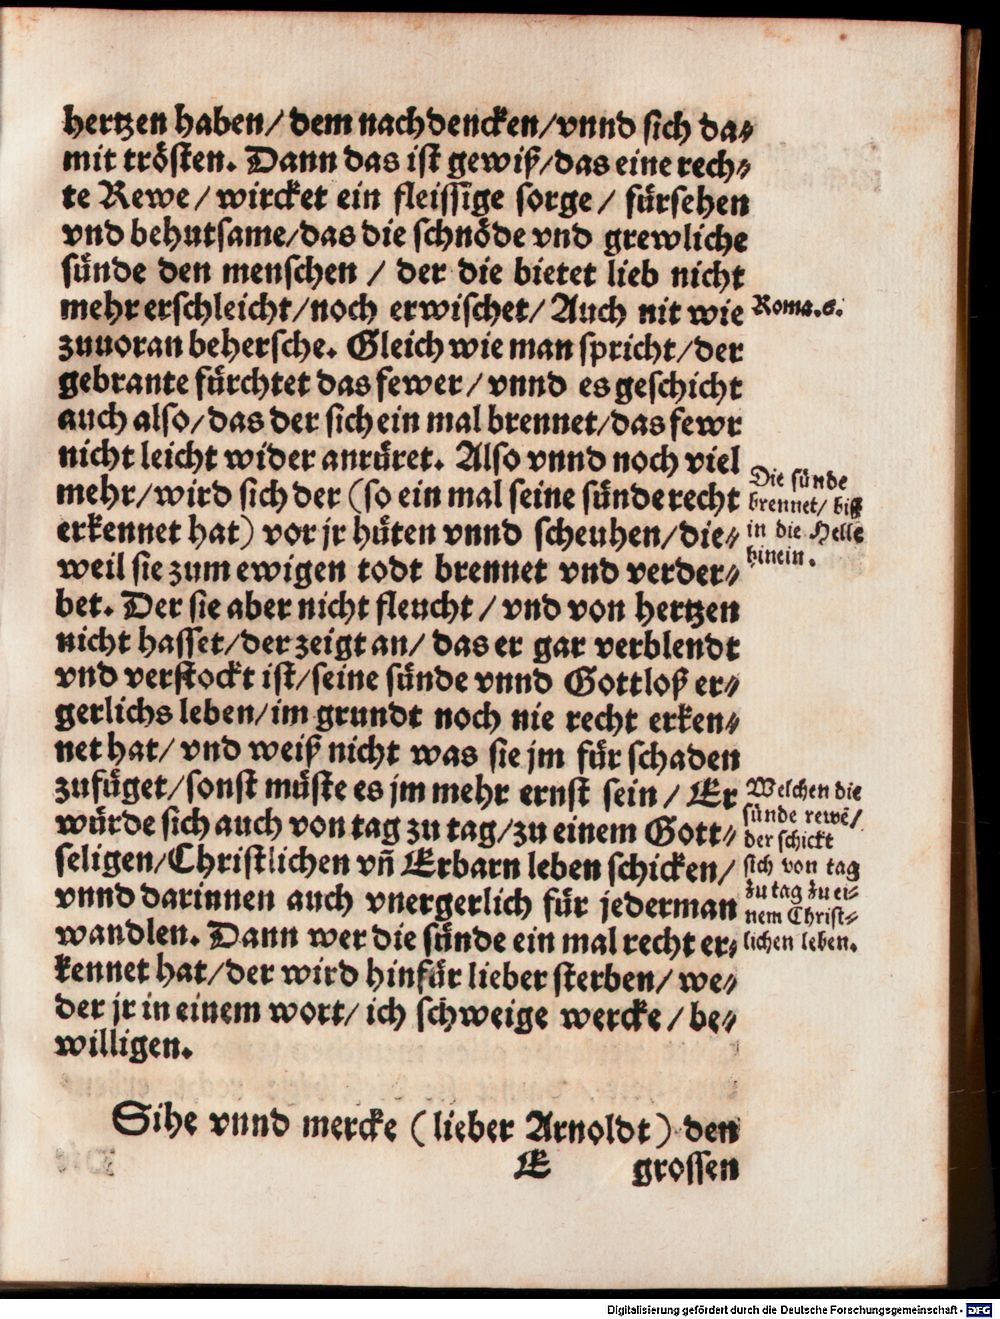 hertzen haben/ dem nachdencken/ vnnd sich da⸗
mit trösten. Dann das ist gewiß/ das eine rech⸗
te Rewe/ wircket ein fleissige sorge/ fürsehen
vnd behutsame/ das die schnöde vnd grewliche
sünde den menschen/ der die bietet lieb nicht
mehr erschleicht/ noch erwischet/ Auch nit wie
zuuoran behersche. Gleich wie man spricht/ der
gebrante fürchtet das fewer/ vnnd es geschicht
auch also/ das der sich ein mal brennet/ das fewr
nicht leicht wider anrüret. Also vnnd noch viel
mehr/ wird sich der (so ein mal seine sünde recht
erkennet hat) vor jr hüten vnnd scheuhen/ die⸗
weil sie zum ewigen todt brennet vnd verder⸗
bet. Der sie aber nicht fleucht/ vnd von hertzen
nicht hasset/ der zeigt an/ das er gar verblendt
vnd verstockt ist/ seine sünde vnnd Gottloß er⸗
gerlichs leben/ im grundt noch nie recht erken⸗
net hat/ vnd weiß nicht was sie jm für schaden
zufüget/ sonst müste es jm mehr ernst sein/ Er
würde sich auch von tag zu tag/ zu einem Gott⸗
seligen/ Christlichen vñ Erbarn leben schicken/
vnnd darinnen auch vnergerlich für jederman
wandlen. Dann wer die sünde ein mal recht er⸗
kennet hat/ der wird hinfür lieber sterben/ we⸗
der jr in einem wort/ ich schweige wercke/ be⸗
willigen.
Sihe vnnd mercke (lieber Arnoldt) den
E grossen
Roma. 6.
Die sünde
brennet/ biß
in die Helle
hinein.
Welchen die
sünde rewē/
der schickt
sich von tag
zu tag zu ei⸗
nem Christ⸗
lichen leben.
Digitalisierung gefördert durch die Deutsche Forschungsgemeinschaft - DFG